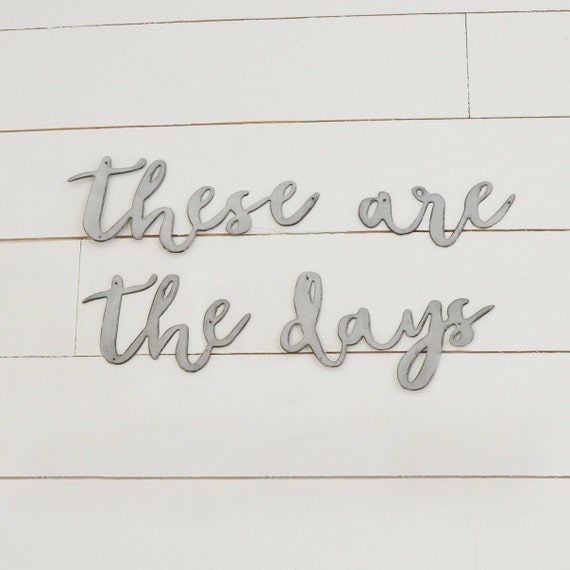 these are
the days